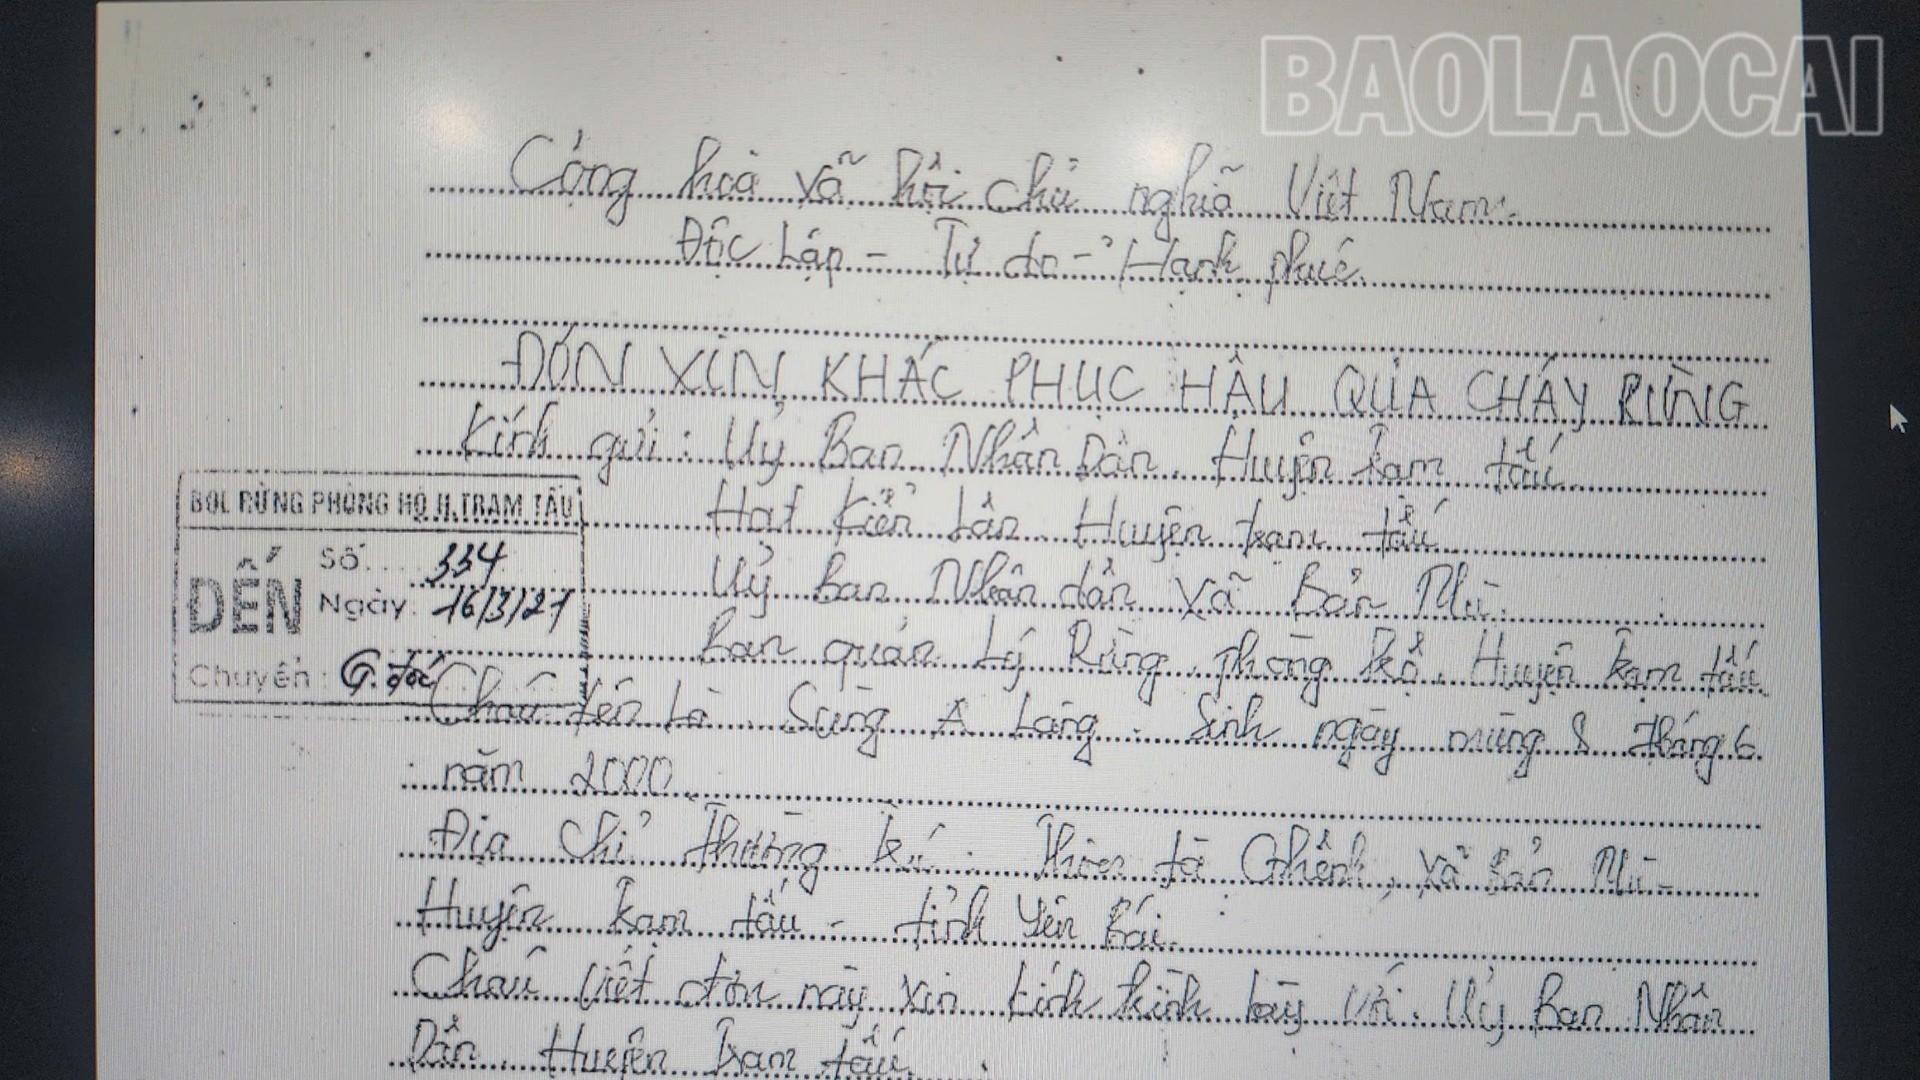 BAOLAOCAI
Cộng hoà xã hội chủ nghĩa Việt Nam.
Độc Lập - Tự do - Hạnh phúc.
ĐƠN XIN KHẮC PHỤC HẬU QỦA CHÁY RỪNG
Kính gửi: Uỷ Ban Nhân Dân. Huyện trạm tấu
Hạt Kiển Lân Huyện trạm tấu
Uỷ Ban Nhân dân xã Bản Mù.
Ban quản Lý Rừng phòng hộ. Huyện trạm tấu
BQL RỪNG PHÒNG HỘ H.TRẠM TẤU
ĐẾN
Số: 334
Ngày: 16/3/21
Chuyển: G.đốc
Cháu tên Là Sùng A Lăng. Sinh ngày mùng 8 tháng 6
năm 2000
Địa Chỉ Thường trú: Thôn tà Ghênh, xã Bản Mù -
Huyện trạm tấu - tỉnh Yên Bái
Cháu viết đơn này xin kính trình bày với. Uỷ Ban Nhân
Dân. Huyện trạm tấu